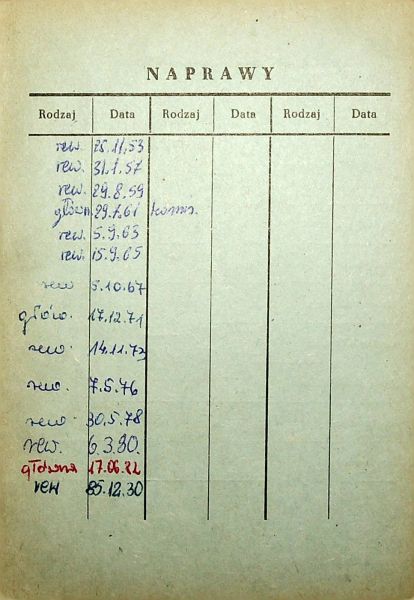 NAPRAWY
Rodzaj Data Rodzaj Data Rodzaj Data
rew. 25.11.53
rew. 31.1.57
rew. 29.8.59
główn. 29.7.61
rew. 5.9.63
rew. 15.9.65
rew 5.10.67
główn. 17.12.71
rew. 14.11.73
rew. 7.5.76
rew 30.5.78
rew. 6.3.80.
główna 17.06.82
rew 85.12.30